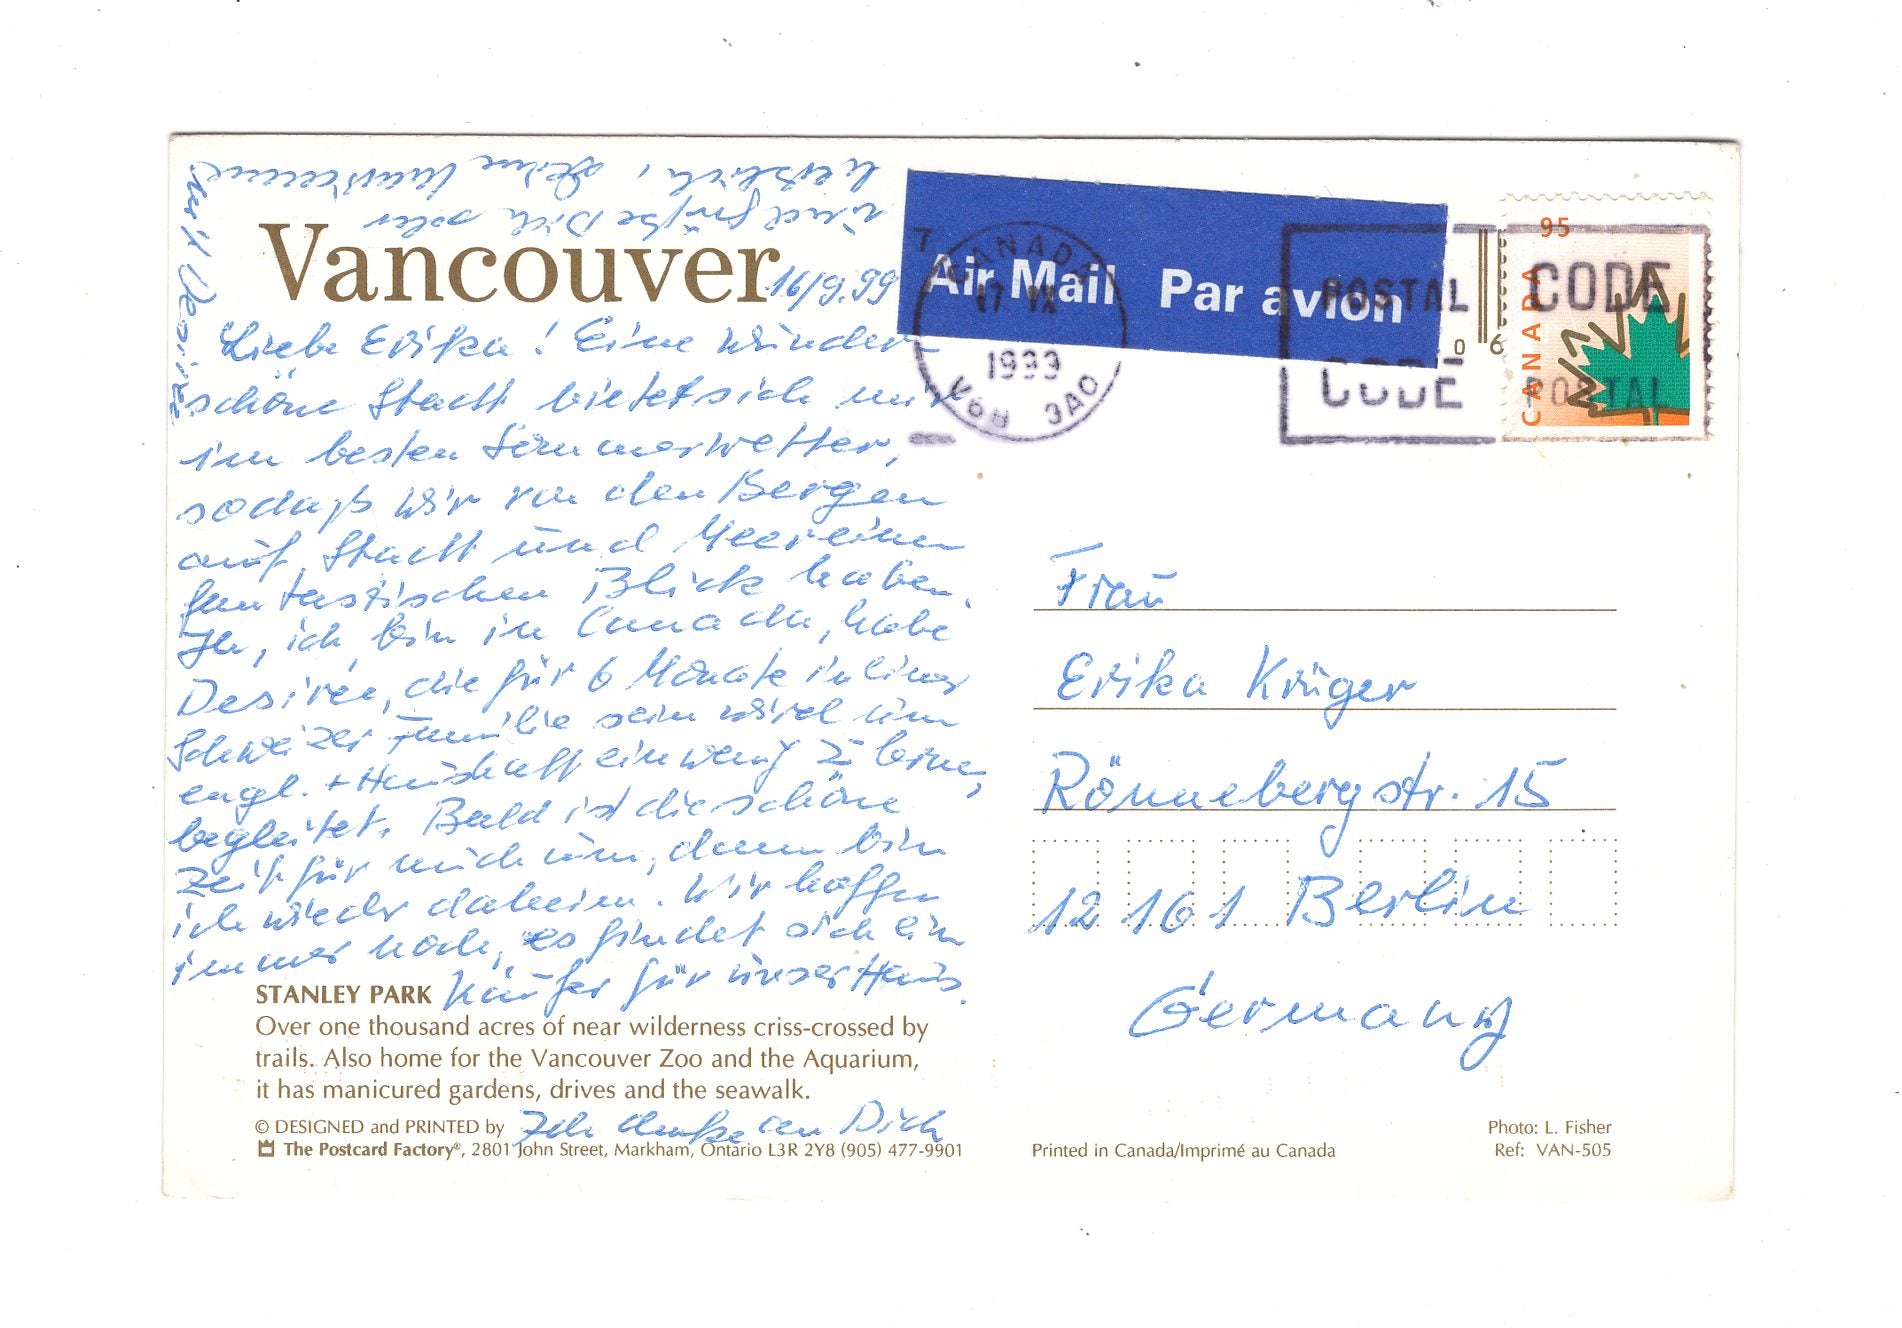 Vancouver
16/9.99
Liebe Erika! Eine wunder-
schöne Stadt bietet sich mir
im besten Sommerwetter,
sodaß wir von den Bergen
auf Stadt und Meer einen
fantastischen Blick haben.
Ja, ich bin in Canada, habe
Desirée, die für 6 Monate in einer
Schweizer Familie sein wird um
engl. + Haushalt ein wenig z. lernen,
begleitet. Bald ist die schöne
Zeit für mich um, dann bin
ich wieder daheim. Wir hoffen
immer noch, es findet sich ein
Käufer für unser Haus.
STANLEY PARK
Over one thousand acres of near wilderness criss-crossed by
trails. Also home for the Vancouver Zoo and the Aquarium,
it has manicured gardens, drives and the seawalk.
© DESIGNED and PRINTED by
The Postcard Factory®, 2801 John Street, Markham, Ontario L3R 2Y8 (905) 477-9901
Ich denke an Dich
und grüße Dich sehr
herzlich, Deine
mit Desirée
Air Mail Par avion
CANADA
17 IX
1999
V6B 3A0
POSTAL CODE
CODE POSTAL
95
CANADA
06
Frau
Erika Krüger
Rönnebergstr. 15
12161 Berlin
Germany
Printed in Canada/Imprimé au Canada
Photo: L. Fisher
Ref: VAN-505